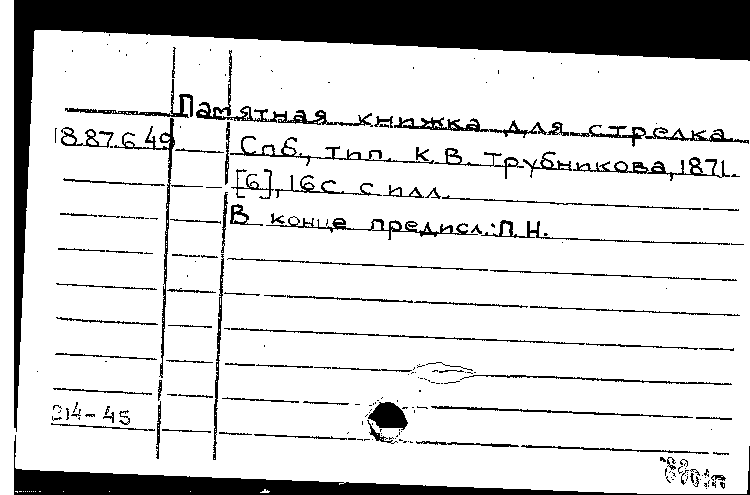 Памятная книжка для стрелка.
18.87.6.49.
Спб., тип. К.В. Трубникова, 1871.
[6], 16с. с илл.
В конце предисл.: П.Н.
214-45